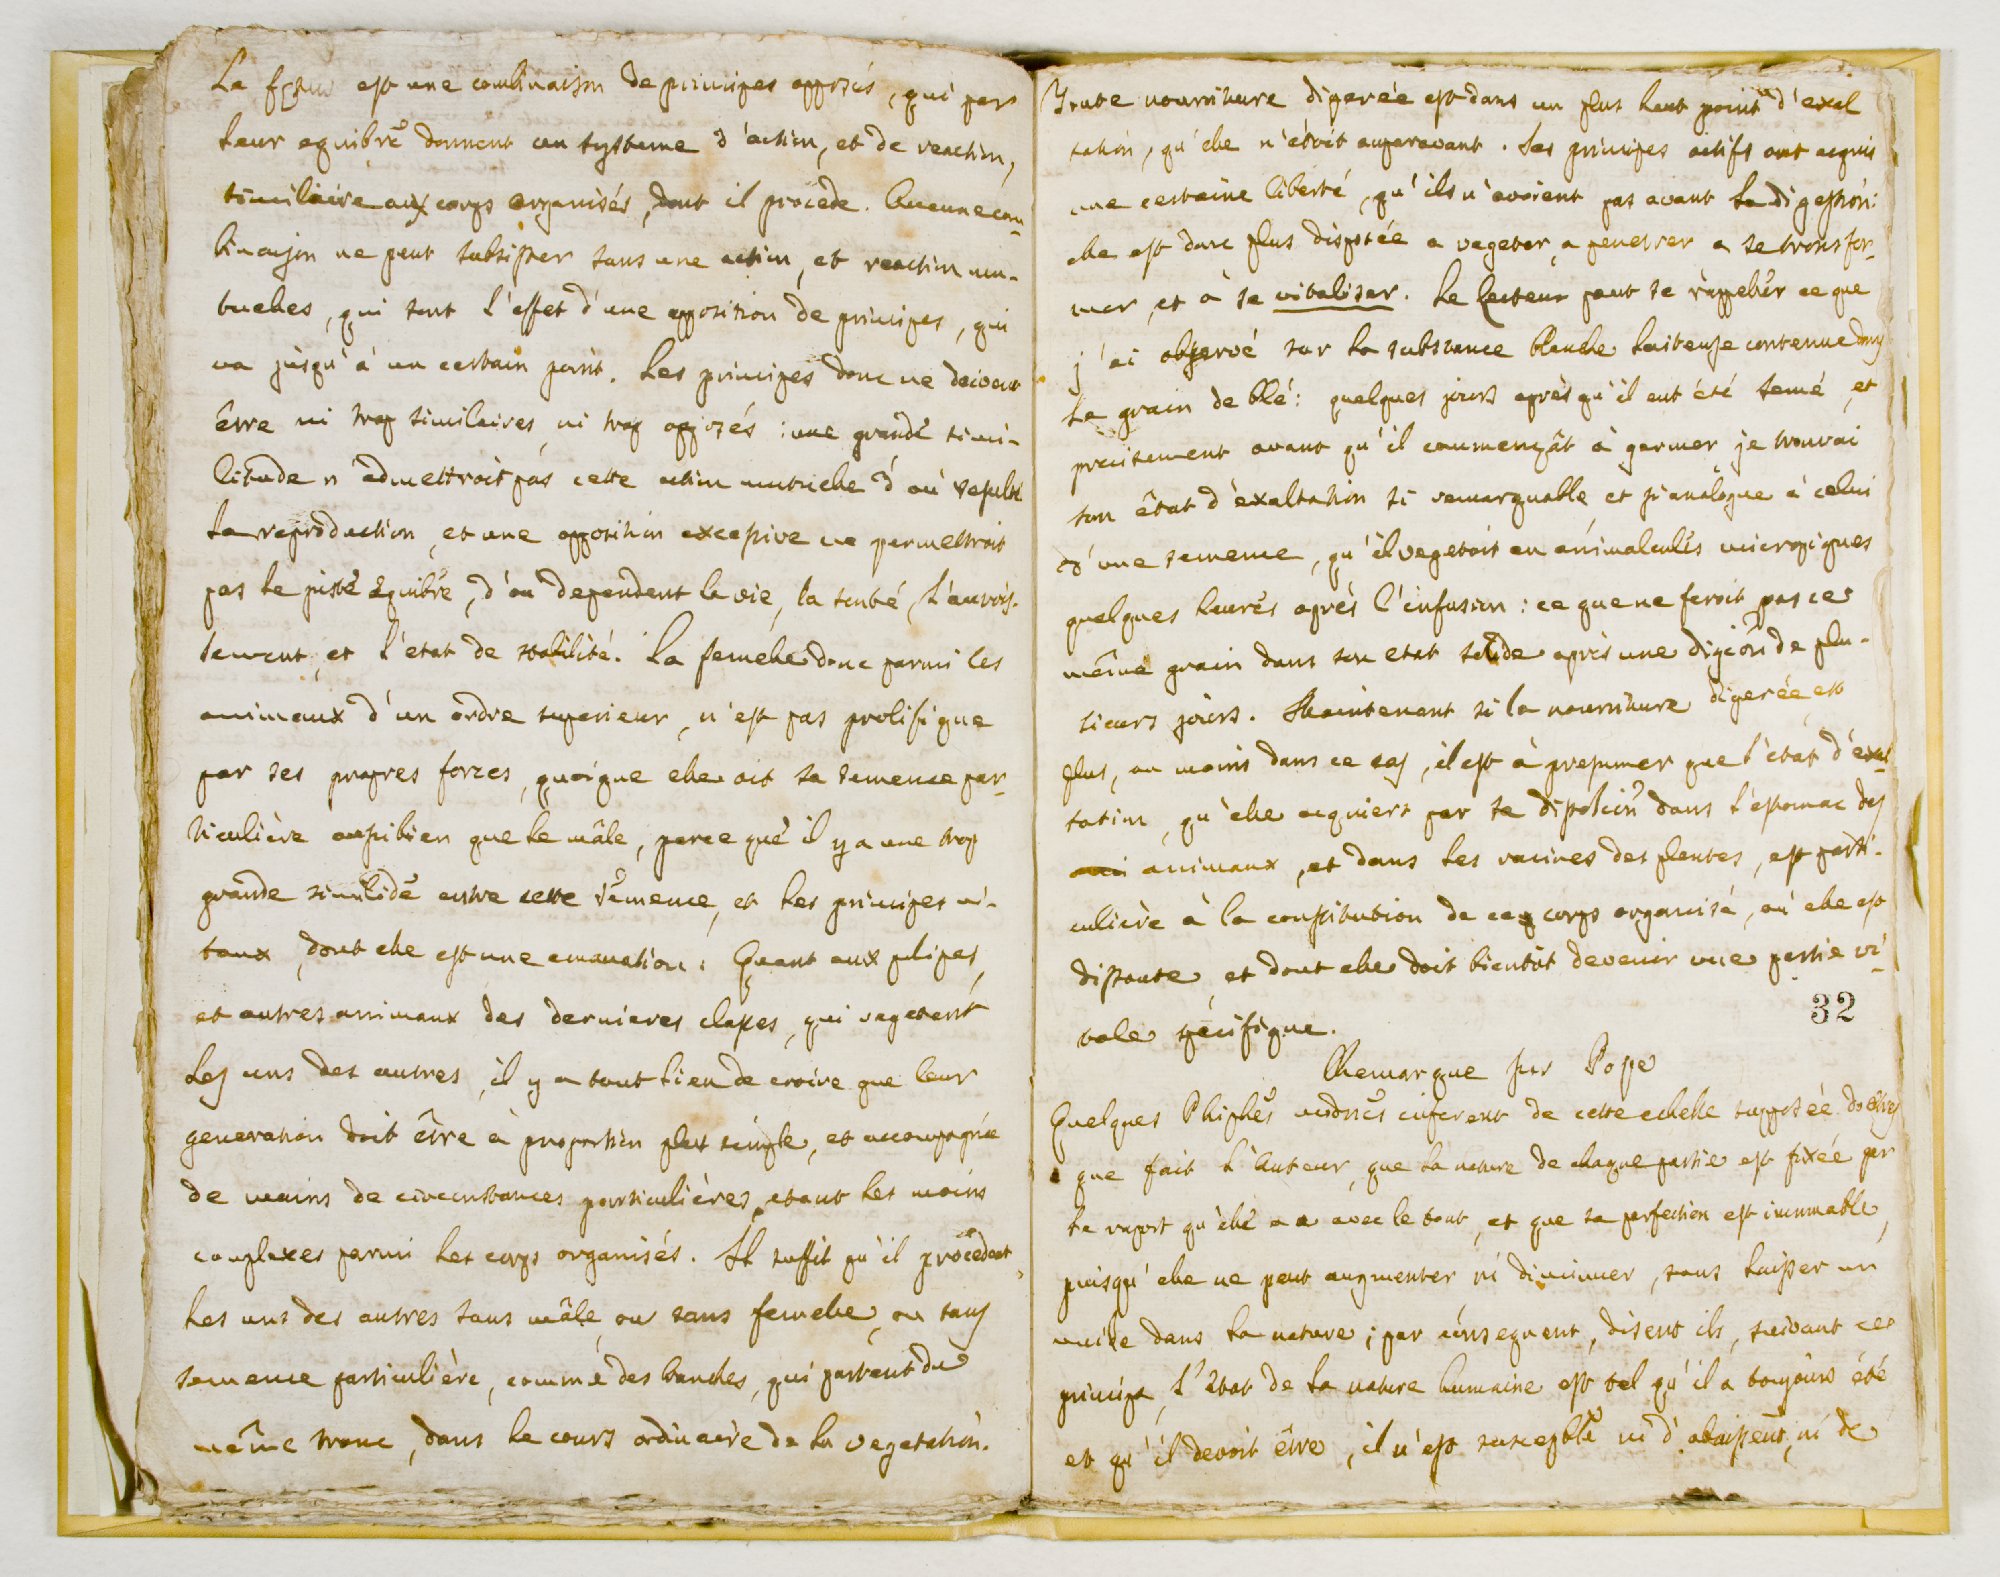 Le est une combinaison de principes opposés, qui par
leur equibre donnent un systeme d'action, et de reaction,
similaire aux corps organisés, dont il procede. Aucune com
binaison ne peut subsister sans une action, et reaction mu-
tuelles, qui sont l'effet d'une opposition de principes, qui
va jusqu'à un certain point. Les principes donc ne doivent
être ni trop similaires, ni trop opposés : une grande simi-
litude n'admettroit pas cette action mutuelle d'où resulte
la reproduction, et une opposition excessive ne permettroit
pas le juste equibre, d'où dependent la vie, la santé, l'accrois-
sement, et l'etat de stabilité. La femelle donc parmi les
animaux d'un ordre superieur, n'est pas prolifique
par ses propres forces, quoique elle ait sa semence par-
ticulière aussibien que le mâle, parce què il y a une trop
grande entre cette semence, et les principes vi-
taux, dont elle est une emanation. Quant aux polipes,
et autres animaux des dernieres classes, qui vegetent
les uns des autres, il y a tout lieu de croire que leur
generation doit être à proportion plus simple, et accompagnée
de moins de circonstances particulières, etant les moins
complexes parmi les corps organisés. Il suffit qu'il procedent
les uns des autres sans mâle, ou sans femelle, ou sans
semence particulière, comme des branches, qui partent du
même tronc, dans le cours ordinaire de la vegetation.
Toute nourriture digerée est dans un plus haut point d'exal
tation, qu'elle n'étoit auparavant. Les principes actifs ont acquis
une certaine liberté, qu'ils n'avoient pas avant la digestion:
elle est donc plus disposée a vegeter, a penetrer a se transfor-
mer, et à se vitaliser. Le lecteur peut se rappeller ce que
j'ai observé sur la substance blanche laiteuse contenue dans
le grain de blé: quelques jours après qu'il eut été semé, et
precisement avant qu'il commençât à germer je trouvai
son êtat d'exaltation si remarquable et si analogue à celui
d'une semence, qu'il vegetoit en animalcules
quelques heures après l'infusion : ce que ne feroit pas ce
même grain dans son etat solide après une de plu-
sieurs jours. Maintenant si la nourriture digerée est
plus, ou moins dans ce cas, il est à presumer que l'ètat d'exal
tation, qu'elle acquiert par sa dans l'estomac des
animaux, et dans les racines des plantes, est parti-
culière à la constitution de ce corps organisé, où elle est
dissoute, et dont elle doit bientôt devenir une partie vi-
tale specifique.
32
Remarque sur Pope
Quelques inferent de cette echelle supposée d'etres
que fait l'Auteur, que la nature de chaque partie est fixée par
le raport qu'elle a avec le tout, et que sa perfection est immuable,
puisqu'elle ne peut augmenter ni diminuer, sans laisser un
vuide dans la nature; par consequent, disent ils, suivant ces
principe, l'êtat de la nature humaine est tel qu'il a toujours été
et qu'il devoit être, il n'est susceptible ni d'abaissent, ni de